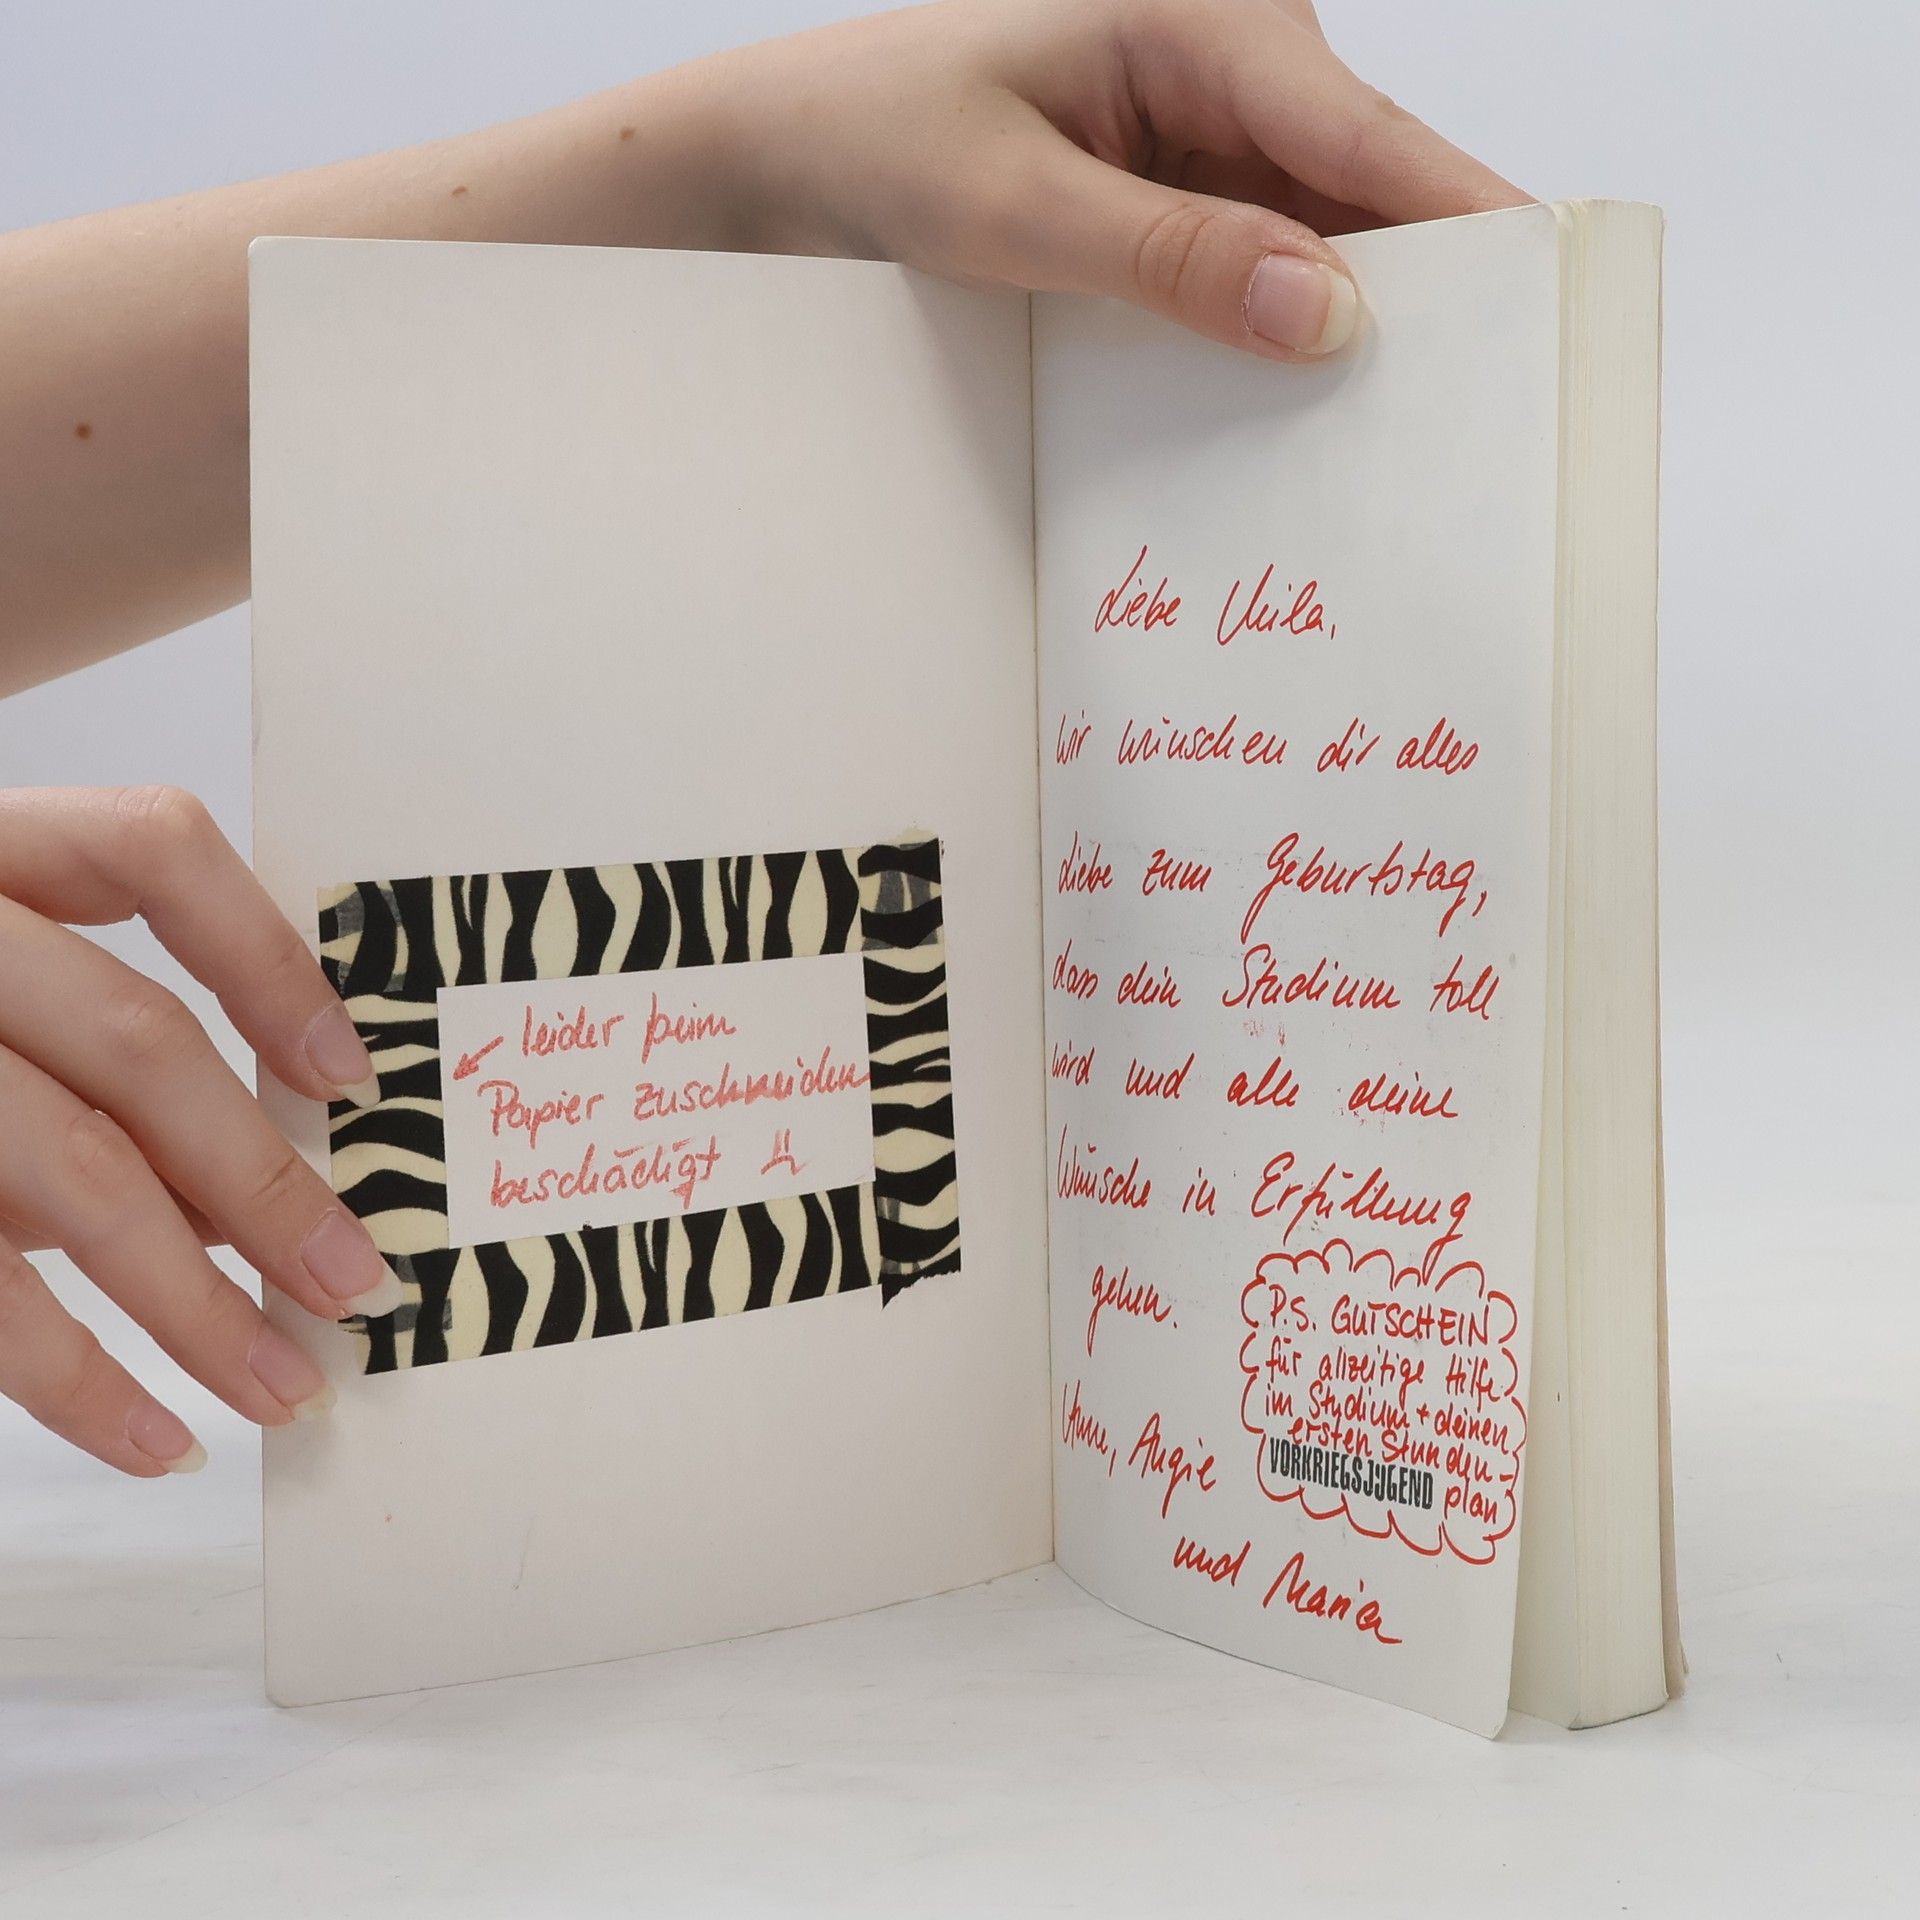 leider beim
Papier zuschneiden
beschädigt
Liebe Mila,
wir wünschen dir alles
Liebe zum Geburtstag,
dass dein Studium toll
wird und alle deine
Wünsche in Erfüllung
gehen.
P.S. GUTSCHEIN
für allzeitige Hilfe
im Studium + deinen
ersten Stunden-
plan
VORKRIEGSJUGEND
Angie
und Maria